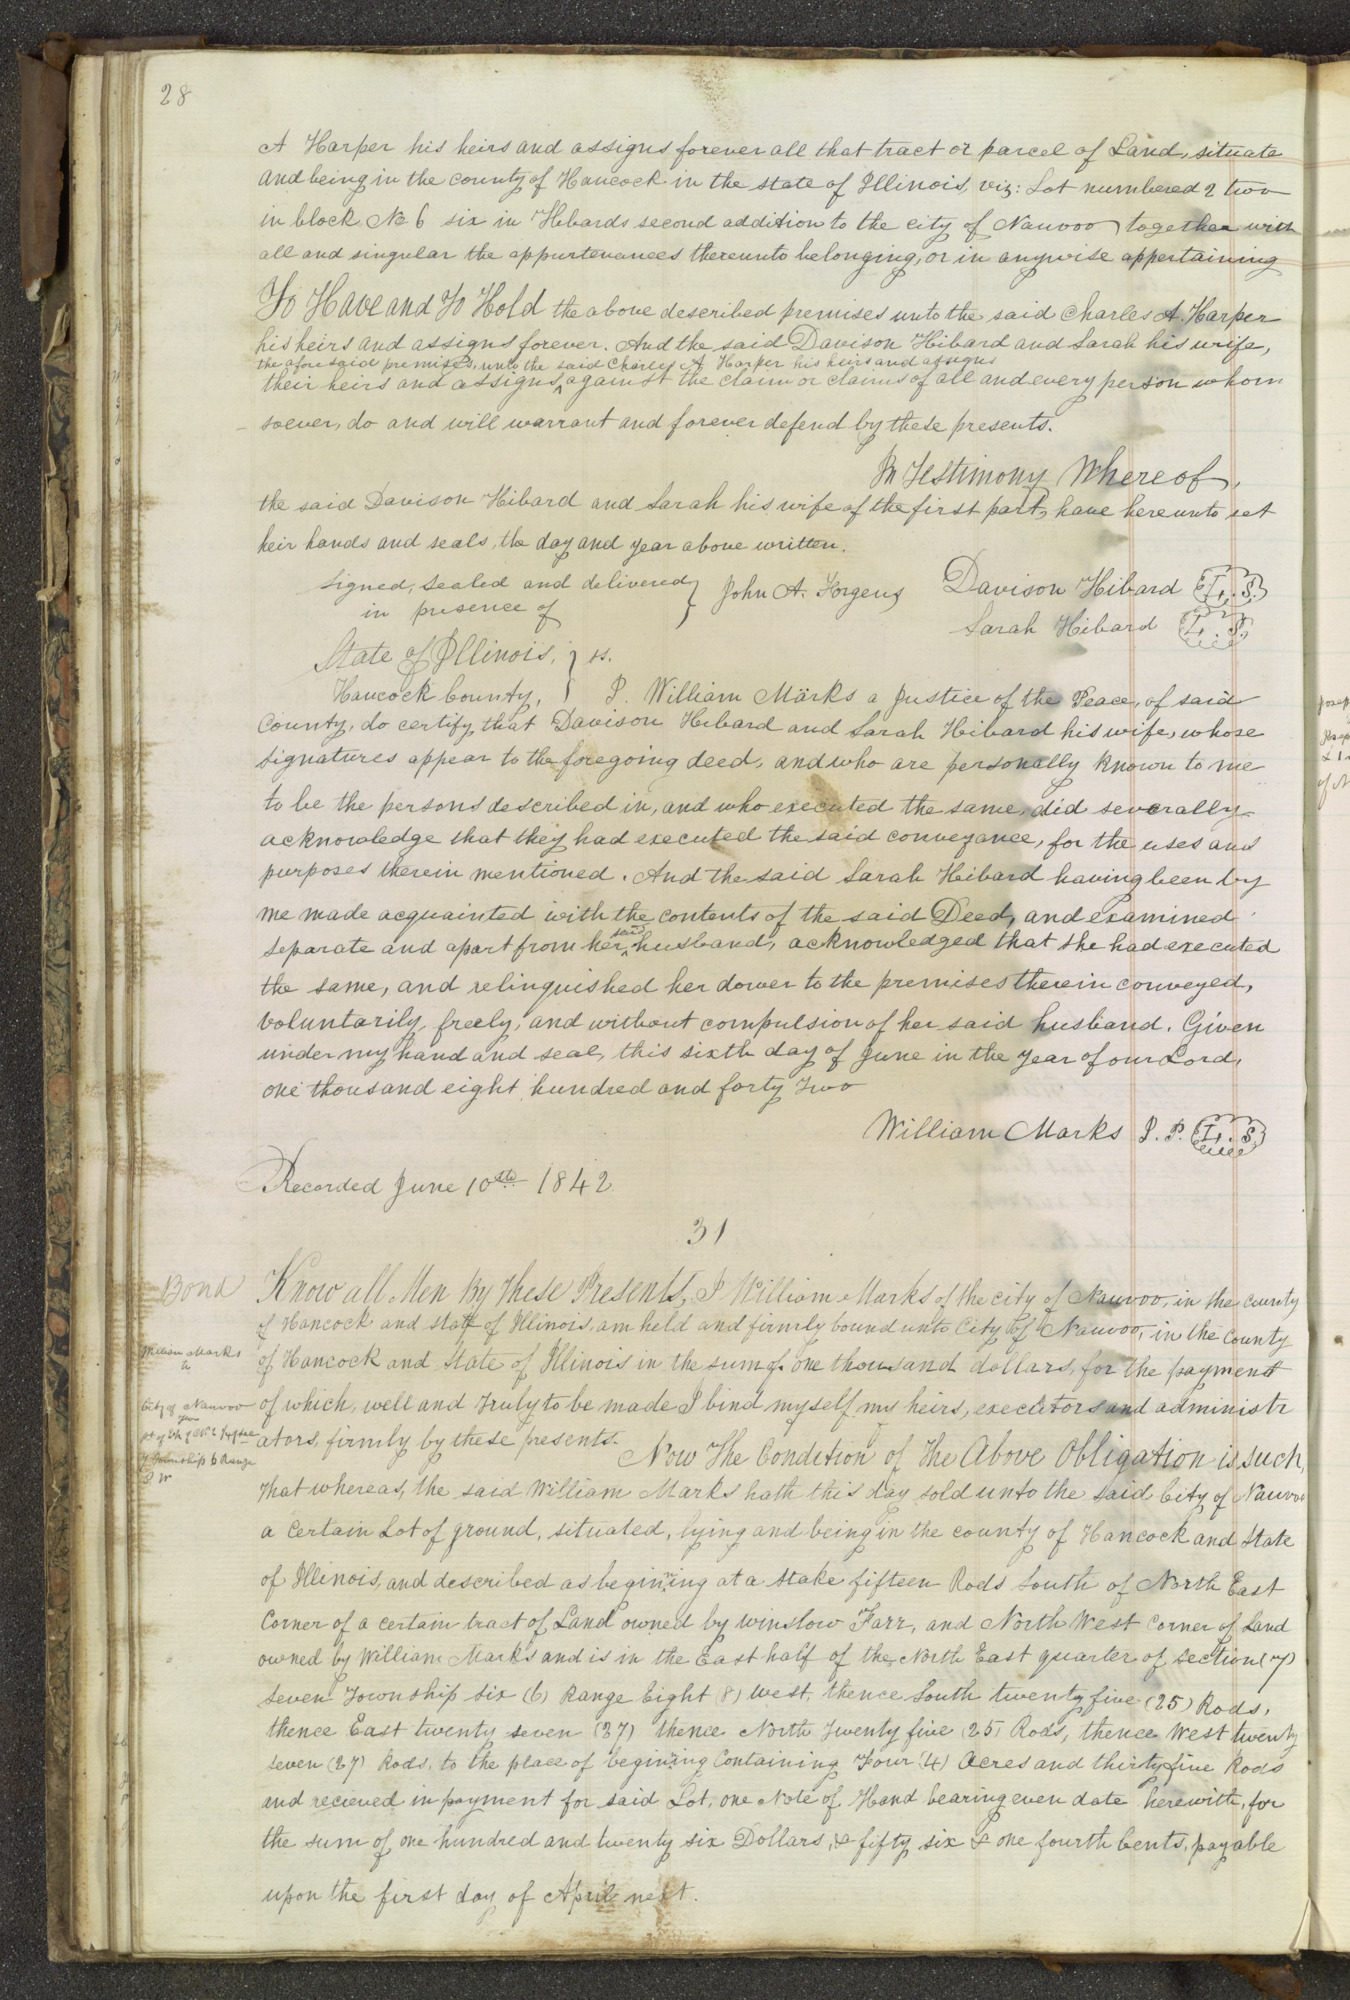 28
A Harper his heirs and assigns forever all that tract or parcel of Land, situate
and being in the county of Hancock in the state of Illinois, viz: Lot numbered 2 two
in block No 6 six in Hibards second addition to the city of Nauvoo together with
all and singular the appurtenances thereunto belonging, or in anywise appertaining
To Have and To Hold the above described premises unto the said Charles A. Harper
his heirs and assigns forever. And the said Davison Hibard and Sarah his wife,
the afore said premises, unto the said Charles A Harper his heirs and assigns
their heirs and assigns, ^ against the claim or claims of all and every person whom
soever, do and will warrant and forever defend by these presents.
In Testimony Whereof,
the said Davison Hibard and Sarah his wife of the first part, have hereunto set
heir hands and seals, the day and year above written.
Signed, Sealed and delivered } John A. Forgeus Davison Hibard (L. S.)
in presence of
Sarah Hibard (L. S.)
State of Illinois, } ss.
Hancock County, I. William Marks a Justice of the Peace, of said
County, do certify that Davison Hibard and Sarah Hibard his wife, whose
signatures appear to the foregoing deed, and who are personally known to me
to be the persons described in, and who executed the same, did severally
acknowledge that they had executed the said conveyance, for the uses and
purposes therein mentioned. And the said Sarah Hibard having been by
me made acquainted with the contents of the said Deed, and examined
separate and apart from her ^ said husband, acknowledged that she had executed
the same, and relinquished her dower to the premises therein conveyed,
voluntarily, freely, and without compulsion of her said husband. Given
under my hand and seal, this sixth day of June in the year of our Lord,
one thousand eight hundred and forty two
William Marks J. P. (L. S.)
Recorded June 10th 1842
31
Bond
Know all Men By these Presents, I William Marks of the city of Nauvoo, in the county
of Hancock and state of Illinois, am held and firmly bound unto City of Nauvoo, in the County
William Marks
to
of Hancock and State of Illinois in the sum of one thousand dollars, for the payment
City of Nauvoo
of which, well and truly to be made I bind myself my heirs, executors and administr
ators, firmly by these presents.
Township 6 Range
8 W
Now The Condition of the Above Obligation is such,
that whereas, the said William Marks hath this day sold unto the said City of Nauvoo
a Certain Lot of ground, situated, lying and being in the county of Hancock and State
of Illinois, and described as begining at a Stake fifteen Rods South of North East
Corner of a certain tract of Land owned by Winslow Farr, and North West Corner of Land
owned by William Marks and is in the East half of the North East quarter of section (7)
Seven Township six (6) Range Eight (8) West, thence South twenty five (25) Rods,
thence East twenty seven (27) thence North Twenty five (25) Rods, thence West twenty
seven (27) Rods, to the place of begining Containing Four (4) Acres and thirty five Rods
and recieved in payment for said Lot, one Note of Hand bearing even date herewith, for
the sum of one hundred and twenty six Dollars, & fifty six & one fourth Cents, payable
upon the first day of April next.